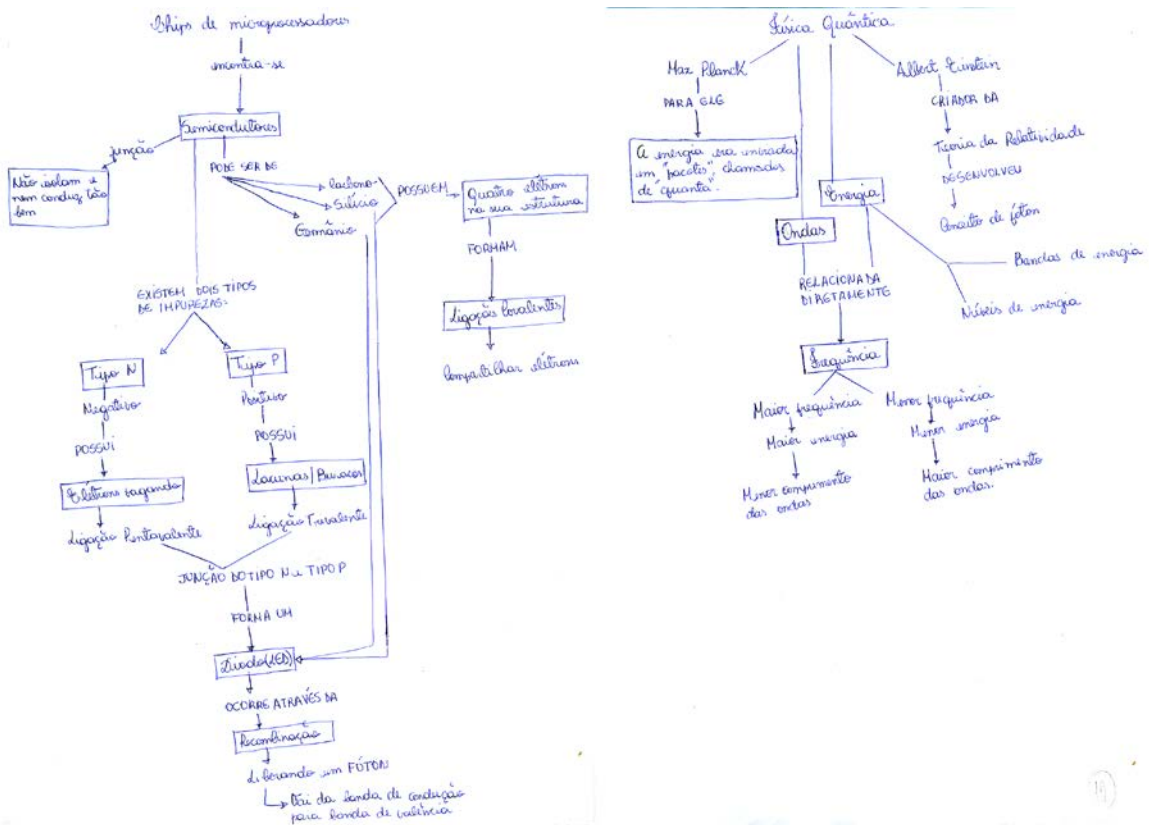 Chips de microprocessadores
encontra-se
Semicondutores
junção
Não isolam e
nem conduz tão
bem
PODE SER DE
Carbono
Silício
Germânio
POSSUEM
Quatro elétrons
na sua estrutura
FORMAM
Ligação Covalentes
Compartilhar elétrons
EXISTEM DOIS TIPOS
DE IMPUREZAS:
Tipo N
Negativo
POSSUI
Elétrons vagando
Ligação Pentavalente
Tipo P
Positivo
POSSUI
Lacunas/Buracos
Ligação Trivalente
JUNÇÃO DO TIPO N e TIPO P
FORMA UM
Diodo (LED)
OCORRE ATRAVÉS DA
Recombinação
Liberando um FÓTON
Vai da banda de condução
para banda de valência
Física Quântica
Max Planck
PARA ELE
A energia era enviada
em "pacotes", chamados
de "quanta".
Albert Einstein
CRIADOR DA
Teoria da Relatividade
DESENVOLVEU
Conceito de fóton
Energia
Bandas de energia
Níveis de energia
Ondas
RELACIONADA
DIRETAMENTE
Frequência
Maior frequência
Maior energia
Menor comprimento
das ondas
Menor frequência
Menor energia
Maior comprimento
das ondas.